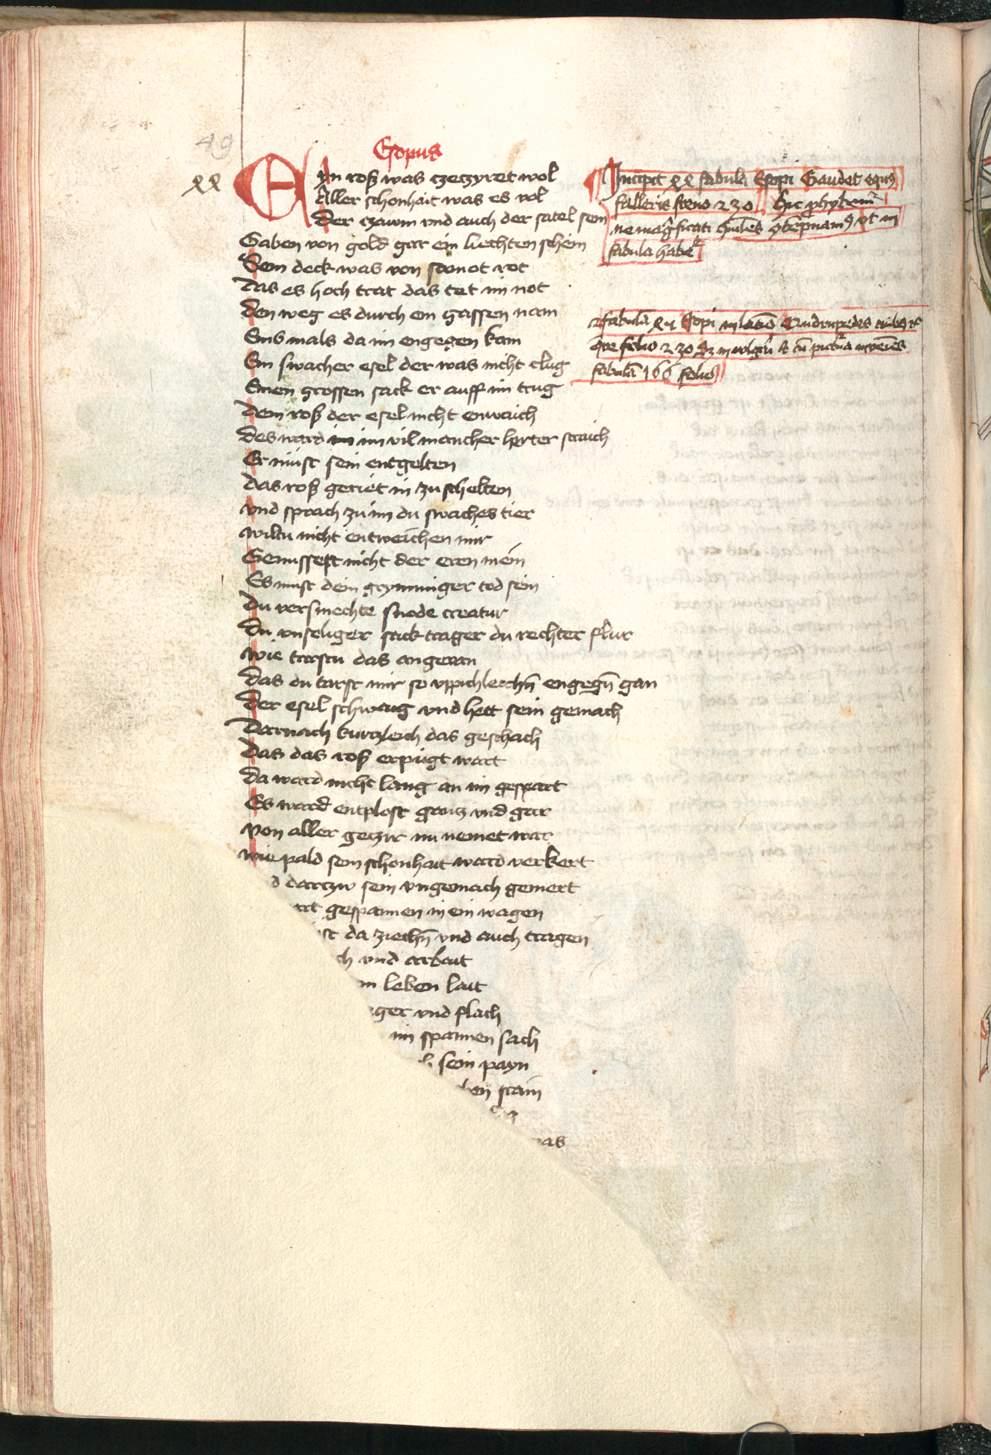 49
Esopus
xx
Eyn roß was geczyret wol
Aller schonhait was es vol
Der czawm vnd auch der satel sein
Gaben von gold gar ein liechten schein
Sein deck was von rot
Das es hoch trat das tet im not
Den weg es durch ein gassen nam
Eins mals da im engegen kam
Ein swacher esel der was nicht clug
Einen grossen sack er auff im trug
Dem roß der esel nicht entwaich
Des ward im vil mancher herter straich
Er must sein entgelten
Das roß geriet in zu schelten
Vnd sprach zu im du swaches tier
Wiltu nicht entweichen mir
Genussest nicht der eren mein
Es must dein grymmiger tod sein
Du versmechte snode creatur
Du vnseliger sack trager du rechter
Wie tarstu das angevan
Das du tarst mir so engegen gan
Der esel schwaig vnd hett sein gemach
Darnach kurczleich das geschach
Das das roß erpugt wart
Da ward nicht lang an im gespart
Es ward entplost gancz vnd gar
Von aller geczir nu nemet war
Wie pald sein schonhait ward verkert
d darczw sein vngemach gemert
art gespannen in ein wagen
ust da ziechen vnd auch tragen
ch vnd arbait
in leben lait
ger vnd flach
im spannen sach
sein payn
ben stain
was
Incipit xx fabula Esopi Gaudet equus
falleris freno 230 hic
ne magnificati ut in
fabula habetur
fabula Esopi in latino Quadrupedes
folio 230 in vulgari
fabulam 166 folio